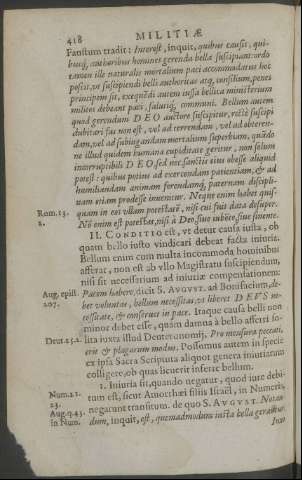 418 MILITIÆ
Faustum tradit: Interest, inquit, quibus causis, qui-
busq́; authoribus homines gerenda bella suscipiant: ordo
tamen ille naturalis mortalium paci accommodatus hoc
poscit, vt suscipiendi belli authoritas atq́; consilium, penes
principem sit, exequēdi autem iussa bellica ministerium
milites debeant paci, salutiq́; communi. Bellum autem
quod gerendum DEO auctore suscipitur, rectè suscipi
dubitari fas non est, vel ad terrendam, vel ad obteren-
dam, vel ad subiugandam mortalium superbiam, quādo
ne illud quidem humana cupiditate geritur, non solum
incorruptibili DEO, sed nec sanctis eius obesse aliquid
potest: quibus potius ad exercendam patientiam, & ad
humiliandam animam ferendamq́; paternam discipli-
nam etiam prodesse inuenitur. Neque enim habet quis-
Rom. 13. quam in eos vllam potestatē, nisi cui fuis data desuper.
2. Nō enim est potestas, nisi à Deo, siue iubēte, siue sinente.
II. CONDITIO est, vt detur causa iusta, ob
quam bello iusto vindicari debeat facta iniuria.
Bellum enim cum multa incommoda hominibus
afferat, non est ab vllo Magistratu suscipiendum,
nisi sit necessarium ad iniuriæ compensationem:
Aug. epist. Pacem habere, dicit S. AVGVST. ad Bonifacium, de-
207. bet voluntas, bellum necessitas, vt liberet DEVS ne-
cessitate, & conseruet in pace. Itaque causa belli non
minor debet esse, quàm damna à bello asserri so-
Deut. 25. 2. lita iuxta illud Deuteronomij. Pro mensura peccati,
erit & plagarum modus. Possumus autem in specie
ex ipsa Sacra Scriptura aliquot genera iniuriarum
colligere, ob quas licuerit inferre bellum.
1. Iniuria sit, quando negatur, quod iure debi-
Num. 21. tum est, sicut Amorrhæi filiis Israël, in Numeris,
23. negarunt transitum. de quo S. AVGVST. Notan-
Aug. q. 43. dum, inquit, est, quemadmodum iusta bella gerantur.
in Num.